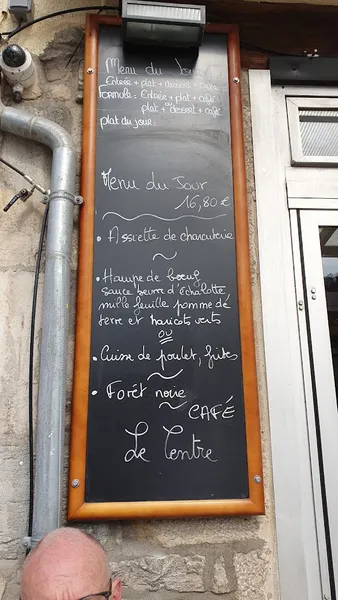 Menu du Jour
Entrée + plat + dessert + café
FORMULE : Entrée + plat + café
ou
plat + dessert + café
plat du jour
Menu du Jour
16,80 €
• Assiette de charcuterie
• Hampe de boeuf
sauce beurre d'échalotte
mille feuille pomme de
terre et haricots verts
ou
• Cuisse de poulet, frites
• Forêt noire
CAFÉ
Le Centre